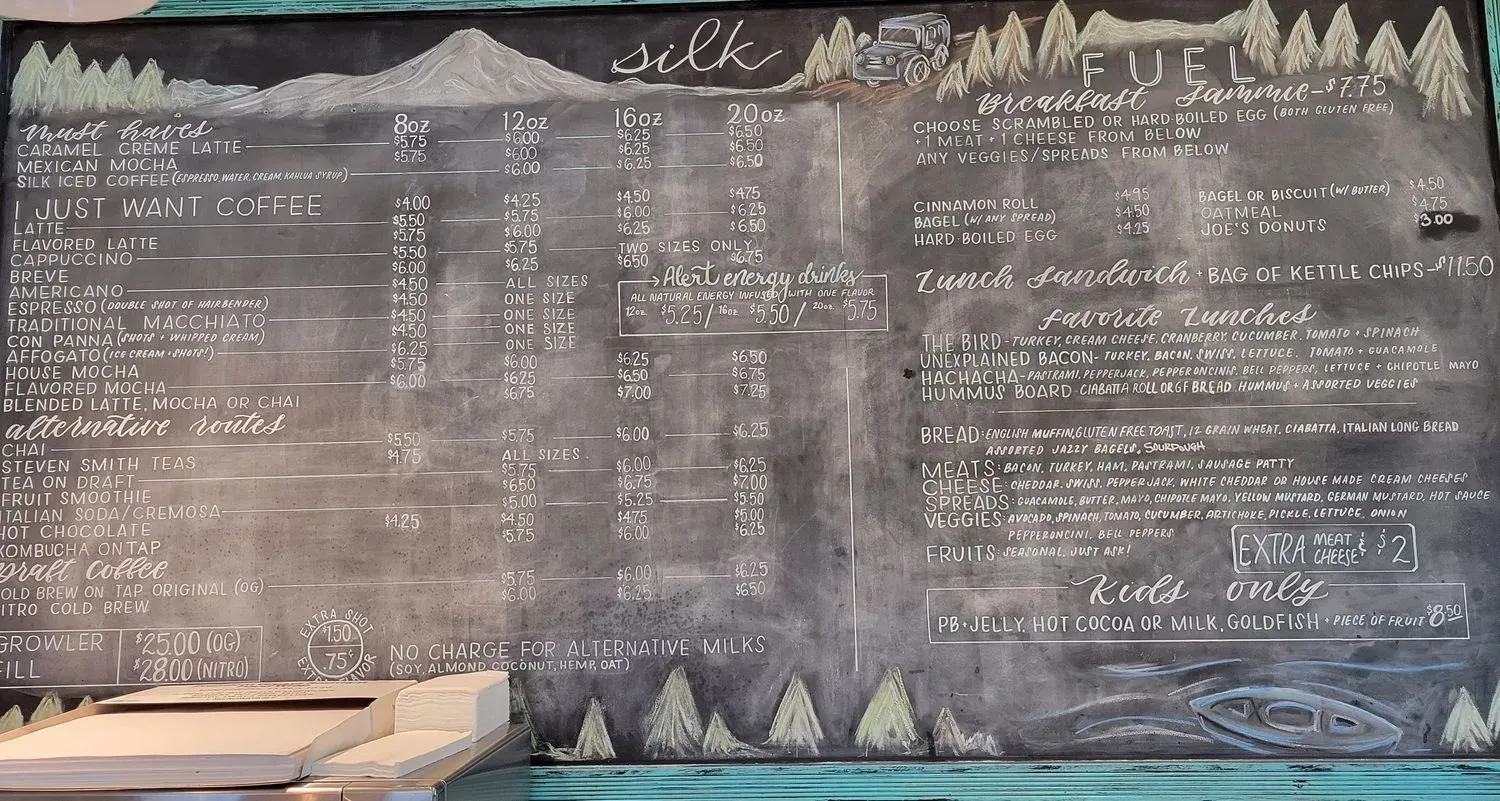 silk
must haves 8oz 12oz 16oz 20oz
CARAMEL CRÈME LATTE $5.75 $6.00 $6.25 $6.50
MEXICAN MOCHA $5.75 $6.00 $6.25 $6.50
SILK ICED COFFEE (ESPRESSO, WATER, CREAM, KAHLUA SYRUP) $6.00 $6.25 $6.50
I JUST WANT COFFEE $4.00 $4.25 $4.50 $4.75
LATTE $5.50 $5.75 $6.00 $6.25
FLAVORED LATTE $5.75 $6.00 $6.25 $6.50
CAPPUCCINO $5.50 $5.75 TWO SIZES ONLY
BREVE $6.00 $6.25 $6.50 $6.75
AMERICANO $4.50 ALL SIZES
ESPRESSO (DOUBLE SHOT OF HAIRBENDER) $4.50 ONE SIZE
TRADITIONAL MACCHIATO $4.50 ONE SIZE
CON PANNA (SHOTS + WHIPPED CREAM) $4.50 ONE SIZE
AFFOGATO (ICE CREAM + SHOTS!) $6.25 ONE SIZE
HOUSE MOCHA $5.75 $6.00 $6.25 $6.50
FLAVORED MOCHA $6.00 $6.25 $6.50 $6.75
BLENDED LATTE, MOCHA OR CHAI $6.75 $7.00 $7.25
Alert energy drinks
ALL NATURAL ENERGY INFUSED WITH ONE FLAVOR
12oz. $5.25 / 16oz. $5.50 / 20oz. $5.75
alternative routes
CHAI $5.50 $5.75 $6.00 $6.25
STEVEN SMITH TEAS $4.75 ALL SIZES.
TEA ON DRAFT $5.75 $6.00 $6.25
FRUIT SMOOTHIE $6.50 $6.75 $7.00
ITALIAN SODA/CREMOSA $5.00 $5.25 $5.50
HOT CHOCOLATE $4.25 $4.50 $4.75 $5.00
KOMBUCHA ON TAP $5.75 $6.00 $6.25
Draft Coffee
OLD BREW ON TAP ORIGINAL (OG) $5.75 $6.00 $6.25
ITRO COLD BREW $6.00 $6.25 $6.50
GROWLER $25.00 (OG)
FILL $28.00 (NITRO)
EXTRA SHOT
$1.50
.75¢
EXTRA FLAVOR
NO CHARGE FOR ALTERNATIVE MILKS
(SOY, ALMOND, COCONUT, HEMP, OAT)
FUEL
Breakfast Sammie - $7.75
CHOOSE SCRAMBLED OR HARD-BOILED EGG (BOTH GLUTEN FREE)
+ 1 MEAT + 1 CHEESE FROM BELOW
ANY VEGGIES/SPREADS FROM BELOW
CINNAMON ROLL $4.95 BAGEL OR BISCUIT (W/ BUTTER) $4.50
BAGEL (W/ ANY SPREAD) $4.50 OATMEAL $4.75
HARD-BOILED EGG $4.25 JOE'S DONUTS 3.00
Lunch Sandwich + BAG OF KETTLE CHIPS - $11.50
Favorite Lunches
THE BIRD - TURKEY, CREAM CHEESE, CRANBERRY, CUCUMBER, TOMATO + SPINACH
UNEXPLAINED BACON - TURKEY, BACON, SWISS, LETTUCE, TOMATO + GUACAMOLE
HACHACHA - PASTRAMI, PEPPERJACK, PEPPERONCINIS, BELL PEPPERS, LETTUCE + CHIPOTLE MAYO
HUMMUS BOARD - CIABATTA ROLL OR GF BREAD, HUMMUS + ASSORTED VEGGIES
BREAD: ENGLISH MUFFIN, GLUTEN FREE TOAST, 12 GRAIN WHEAT, CIABATTA, ITALIAN LONG BREAD
ASSORTED JAZZY BAGELS, SOURDOUGH
MEATS: BACON, TURKEY, HAM, PASTRAMI, SAUSAGE PATTY
CHEESE: CHEDDAR, SWISS, PEPPERJACK, WHITE CHEDDAR OR HOUSE MADE CREAM CHEESES
SPREADS: GUACAMOLE, BUTTER, MAYO, CHIPOTLE MAYO, YELLOW MUSTARD, GERMAN MUSTARD, HOT SAUCE
VEGGIES: AVOCADO, SPINACH, TOMATO, CUCUMBER, ARTICHOKE, PICKLE, LETTUCE, ONION
PEPPERONCINI, BELL PEPPERS
FRUITS: SEASONAL. JUST ASK!
EXTRA MEAT & CHEESE $2
Kids only
PB + JELLY, HOT COCOA OR MILK, GOLDFISH + PIECE OF FRUIT $8.50